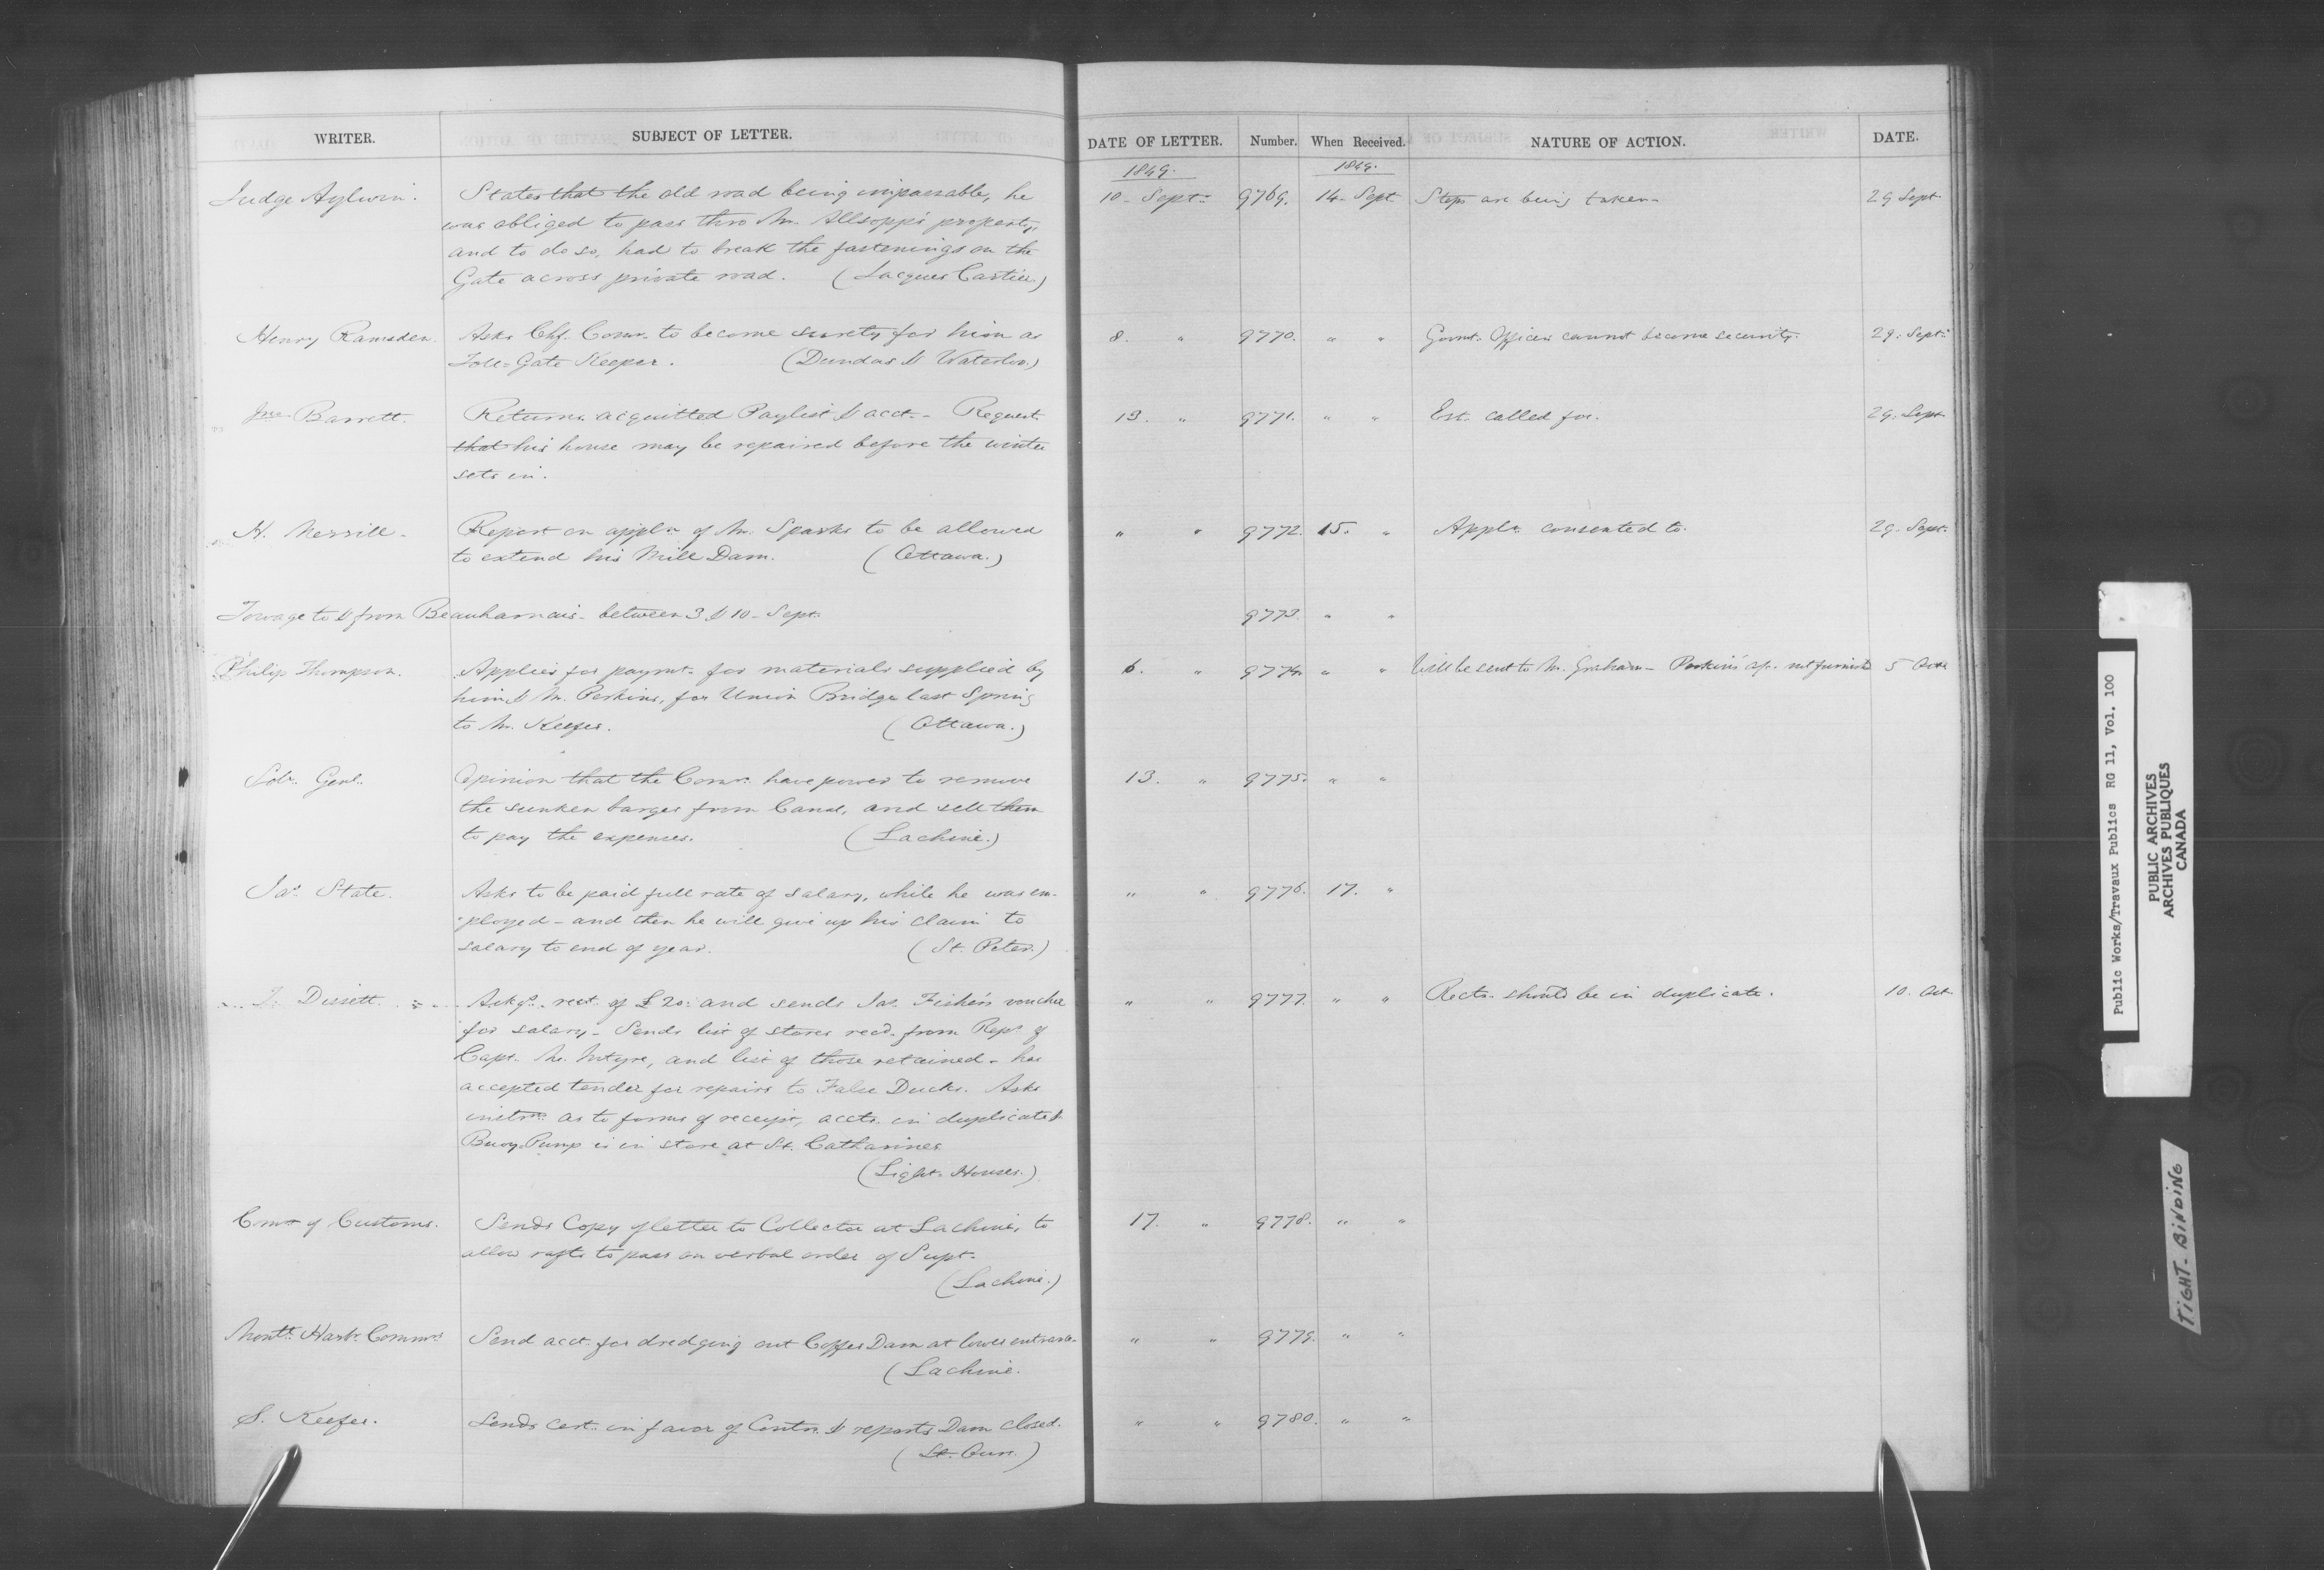 WRITER. SUBJECT OF LETTER. DATE OF LETTER. Number. When Received. NATURE OF ACTION. DATE.
1849. 1849.
Judge Aylwin. States that the old road being impassable, he 10 - Sept: 9769. 14 - Sept Steps are being taken - 29 Sept
was obliged to pass thro Mr. Allsopp's property,
and to do so, had to break the fastenings on the
Gate across private road. (Jacques Cartier.)
Henry Ramsden. Asks Chf. Comr. to become surety for him as 8. " 9770. " " Govmt. Officers cannot become security. 29. Sept:
Toll-Gate Keeper. (Dundas & Waterloo)
Jno. Barrett. Returns acquitted Paylist & acct. - Request 13. " 9771. " " Est. called for. 29. Sept
that his house may be repaired before the winter
sets in.
H. Merrill - Report on appln. of Mr. Sparks to be allowed " " 9772. 15. " Appln. consented to. 29. Sept:
to extend his Mill Dam. (Ottawa.)
Towage to & from Beauharnais - between 3 & 10 - Sept. 9773. " "
Philip Thompson. Applies for paymt. for materials supplied by 6. " 9774. " " Will be sent to Mr. Graham - Perkins' a/c. not furnishd 5 Octr
him & Mr. Perkins, for Union Bridge last Spring
to Mr. Keefer. (Ottawa.)
Solr. Genl. Opinion that the Comrs. have power to remove 13. " 9775. " "
the sunken barges from Canal, and sell them
to pay the expenses. (Lachine.)
Jas. State. Asks to be paid full rate of salary, while he was em- " " 9776. 17. "
ployed - and then he will give up his claim to
salary to end of year. (St. Peter.)
Dissett. Ackgs. rect. of £20: and sends Jas. Fisher's voucher " " 9777. " " Rects. should be in duplicate. 10. Oct.
for salary - Sends list of stores recd. from Reps. of
Capt. McIntyre, and list of those retained - has
accepted tender for repairs to False Ducks. Asks
instrns. as to forms of receipt, accts. in duplicate &
Buoy. Pump is in store at St. Catharines
(Light-Houses.)
Cmr. of Customs. Sends Copy of letter to Collector at Lachine, to 17. " 9778. " "
allow rafts to pass on verbal order of Supt.
(Lachine.)
Montl. Harbr. Commrs. Send acct. for dredging out Coffer Dam at lower entrance - " " 9779. " "
(Lachine.
S. Keefer. Sends cert. in favor of Contr. & reports Dam closed. " " 9780. " "
(St. Ours.)
Public Works/Travaux Publics RG 11, Vol. 100
PUBLIC ARCHIVES
ARCHIVES PUBLIQUES
CANADA
TIGHT-BINDING